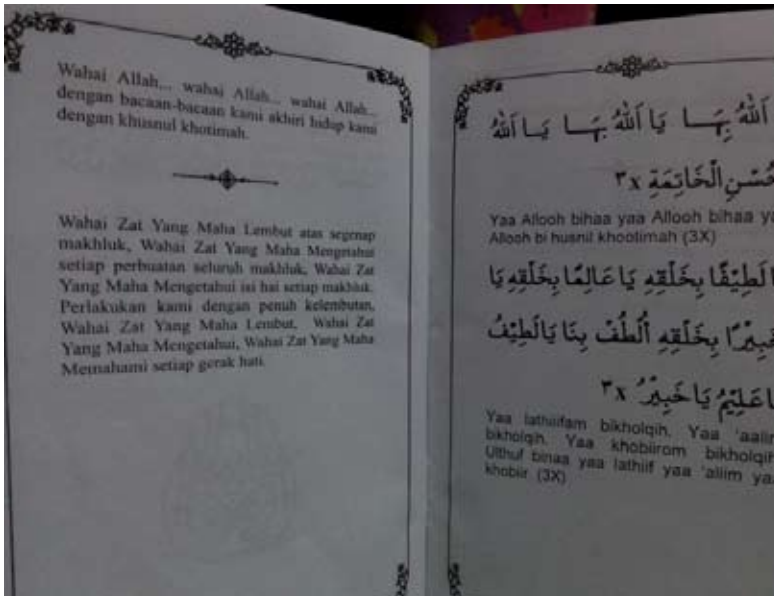 Wahai Allah... wahai Allah... wahai Allah...
dengan bacaan-bacaan kami akhiri hidup kami
dengan khusnul khotimah.
Wahai Zat Yang Maha Lembut atas segenap
makhluk, Wahai Zat Yang Maha Mengetahui
setiap perbuatan seluruh makhluk, Wahai Zat
Yang Maha Mengetahui isi hai setiap makhluk.
Perlakukan kami dengan penuh kelembutan,
Wahai Zat Yang Maha Lembut, Wahai Zat
Yang Maha Mengetahui, Wahai Zat Yang Maha
Memahami setiap gerak hati.
اَللّٰهُ بِهَا يَا اَللّٰهُ بِهَا يَا اَللّٰهُ
حُسْنِ الْخَاتِمَةِ ٣x
Yaa Allooh bihaa yaa Allooh bihaa
Allooh bi husnil khootimah (3X)
لَطِيْفًا بِخَلْقِهِ يَا عَالِمًا بِخَلْقِهِ يَا
خَبِيْرًا بِخَلْقِهِ اُلْطُفْ بِنَا يَالَطِيْفُ
يَاعَلِيْمُ يَا خَبِيْرُ ٣x
Yaa lathiifam bikholqih, Yaa
bikholqih. Yaa khobiirom bikholqih
Ulthuf binaa yaa lathiif yaa 'aliim yaa
khobiir (3X)